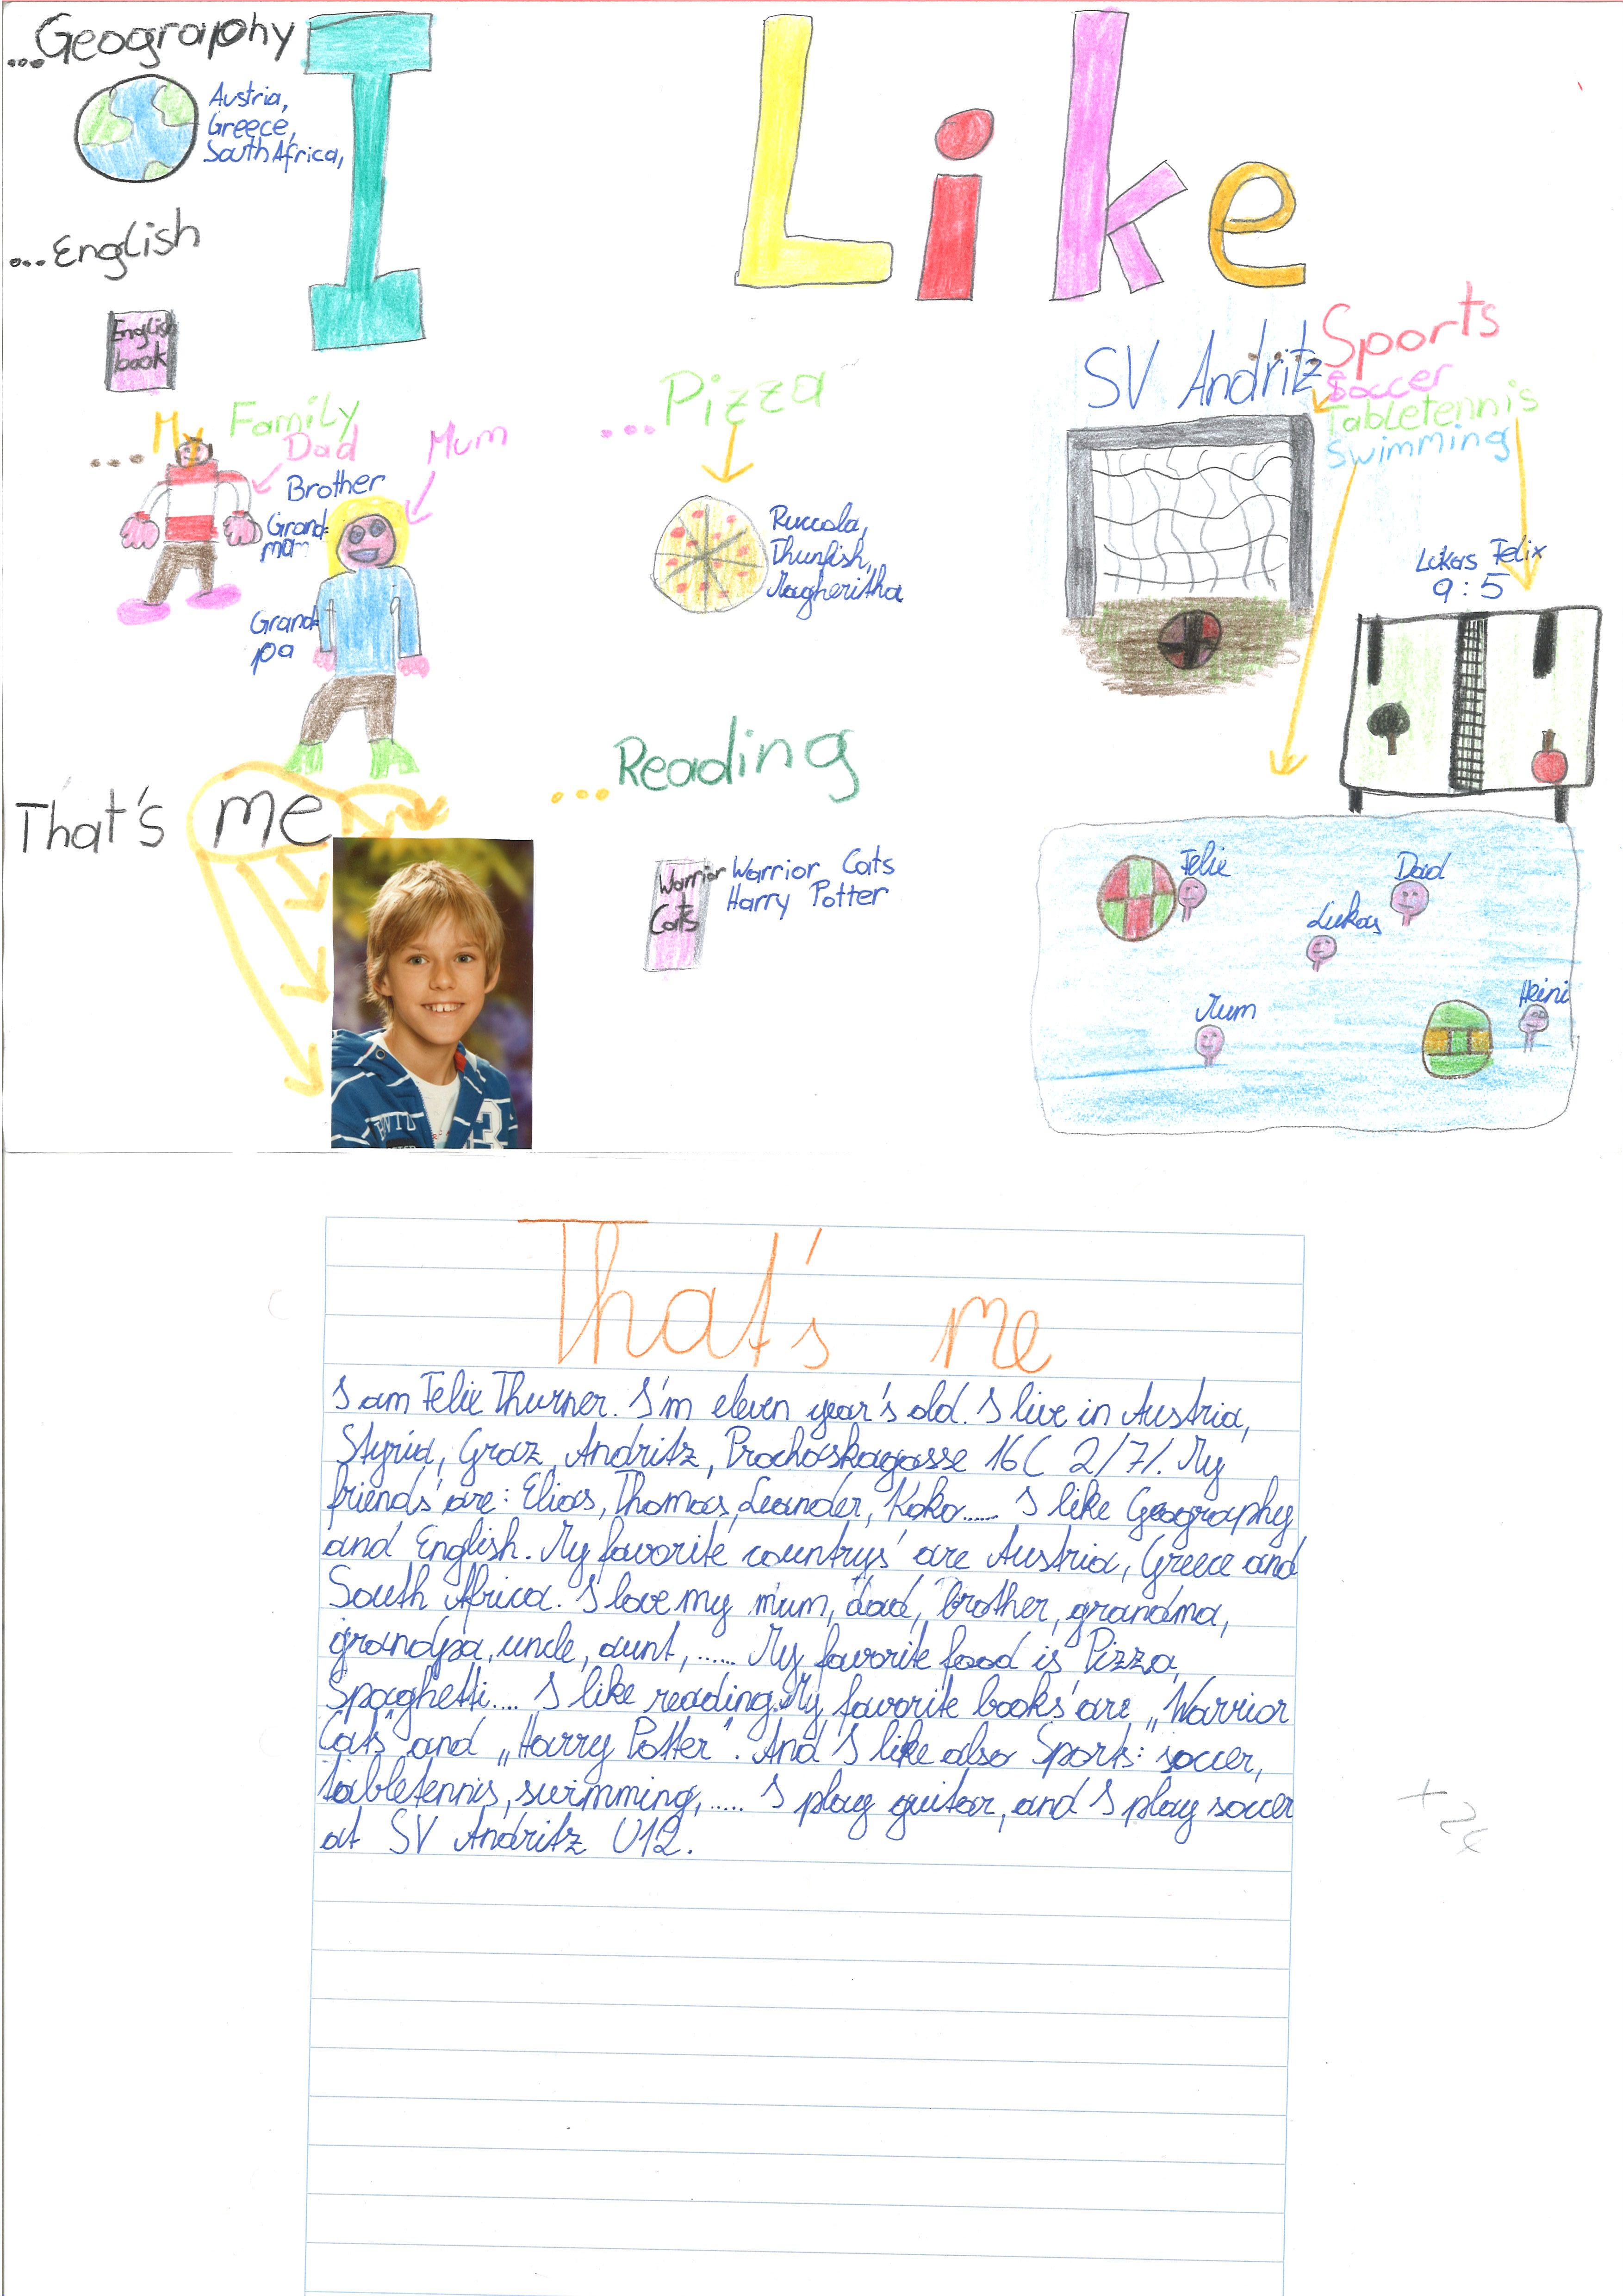 I Like
...Geography
Austria,
Greece,
South Africa,
...English
English
book
... My Family
Dad
Mum
Brother
Grand-
mam
Grand-
pa
...Pizza
Ruccola,
Thunfish,
Magheritha
...Reading
Warrior
Cats
Warrior Cats
Harry Potter
...Sports
Soccer
Tabletennis
Swimming
SV Andritz
Lukas Felix
9:5
Felix
Dad
Lukas
Mum
Heini
That's me
That's me
I am Felix Thurner. I'm eleven year's old. I live in Austria,
Styria, Graz, Andritz, Prochaskagasse 16C 2/7/. My
friends' are: Elias, Thomas, Leander, Koko..... I like Geography
and English. My favorite countrys' are Austria, Greece and
South Africa. I love my mum, dad, brother, grandma,
grandpa, uncle, aunt, ...... My favorite food is Pizza,
Spaghetti.... I like reading. My favorite books' are „Warrior
Cats" and „Harry Potter". And I like also Sports: soccer,
tabletennis, swimming, ..... I play guitar, and I play soccer
at SV Andritz U12.